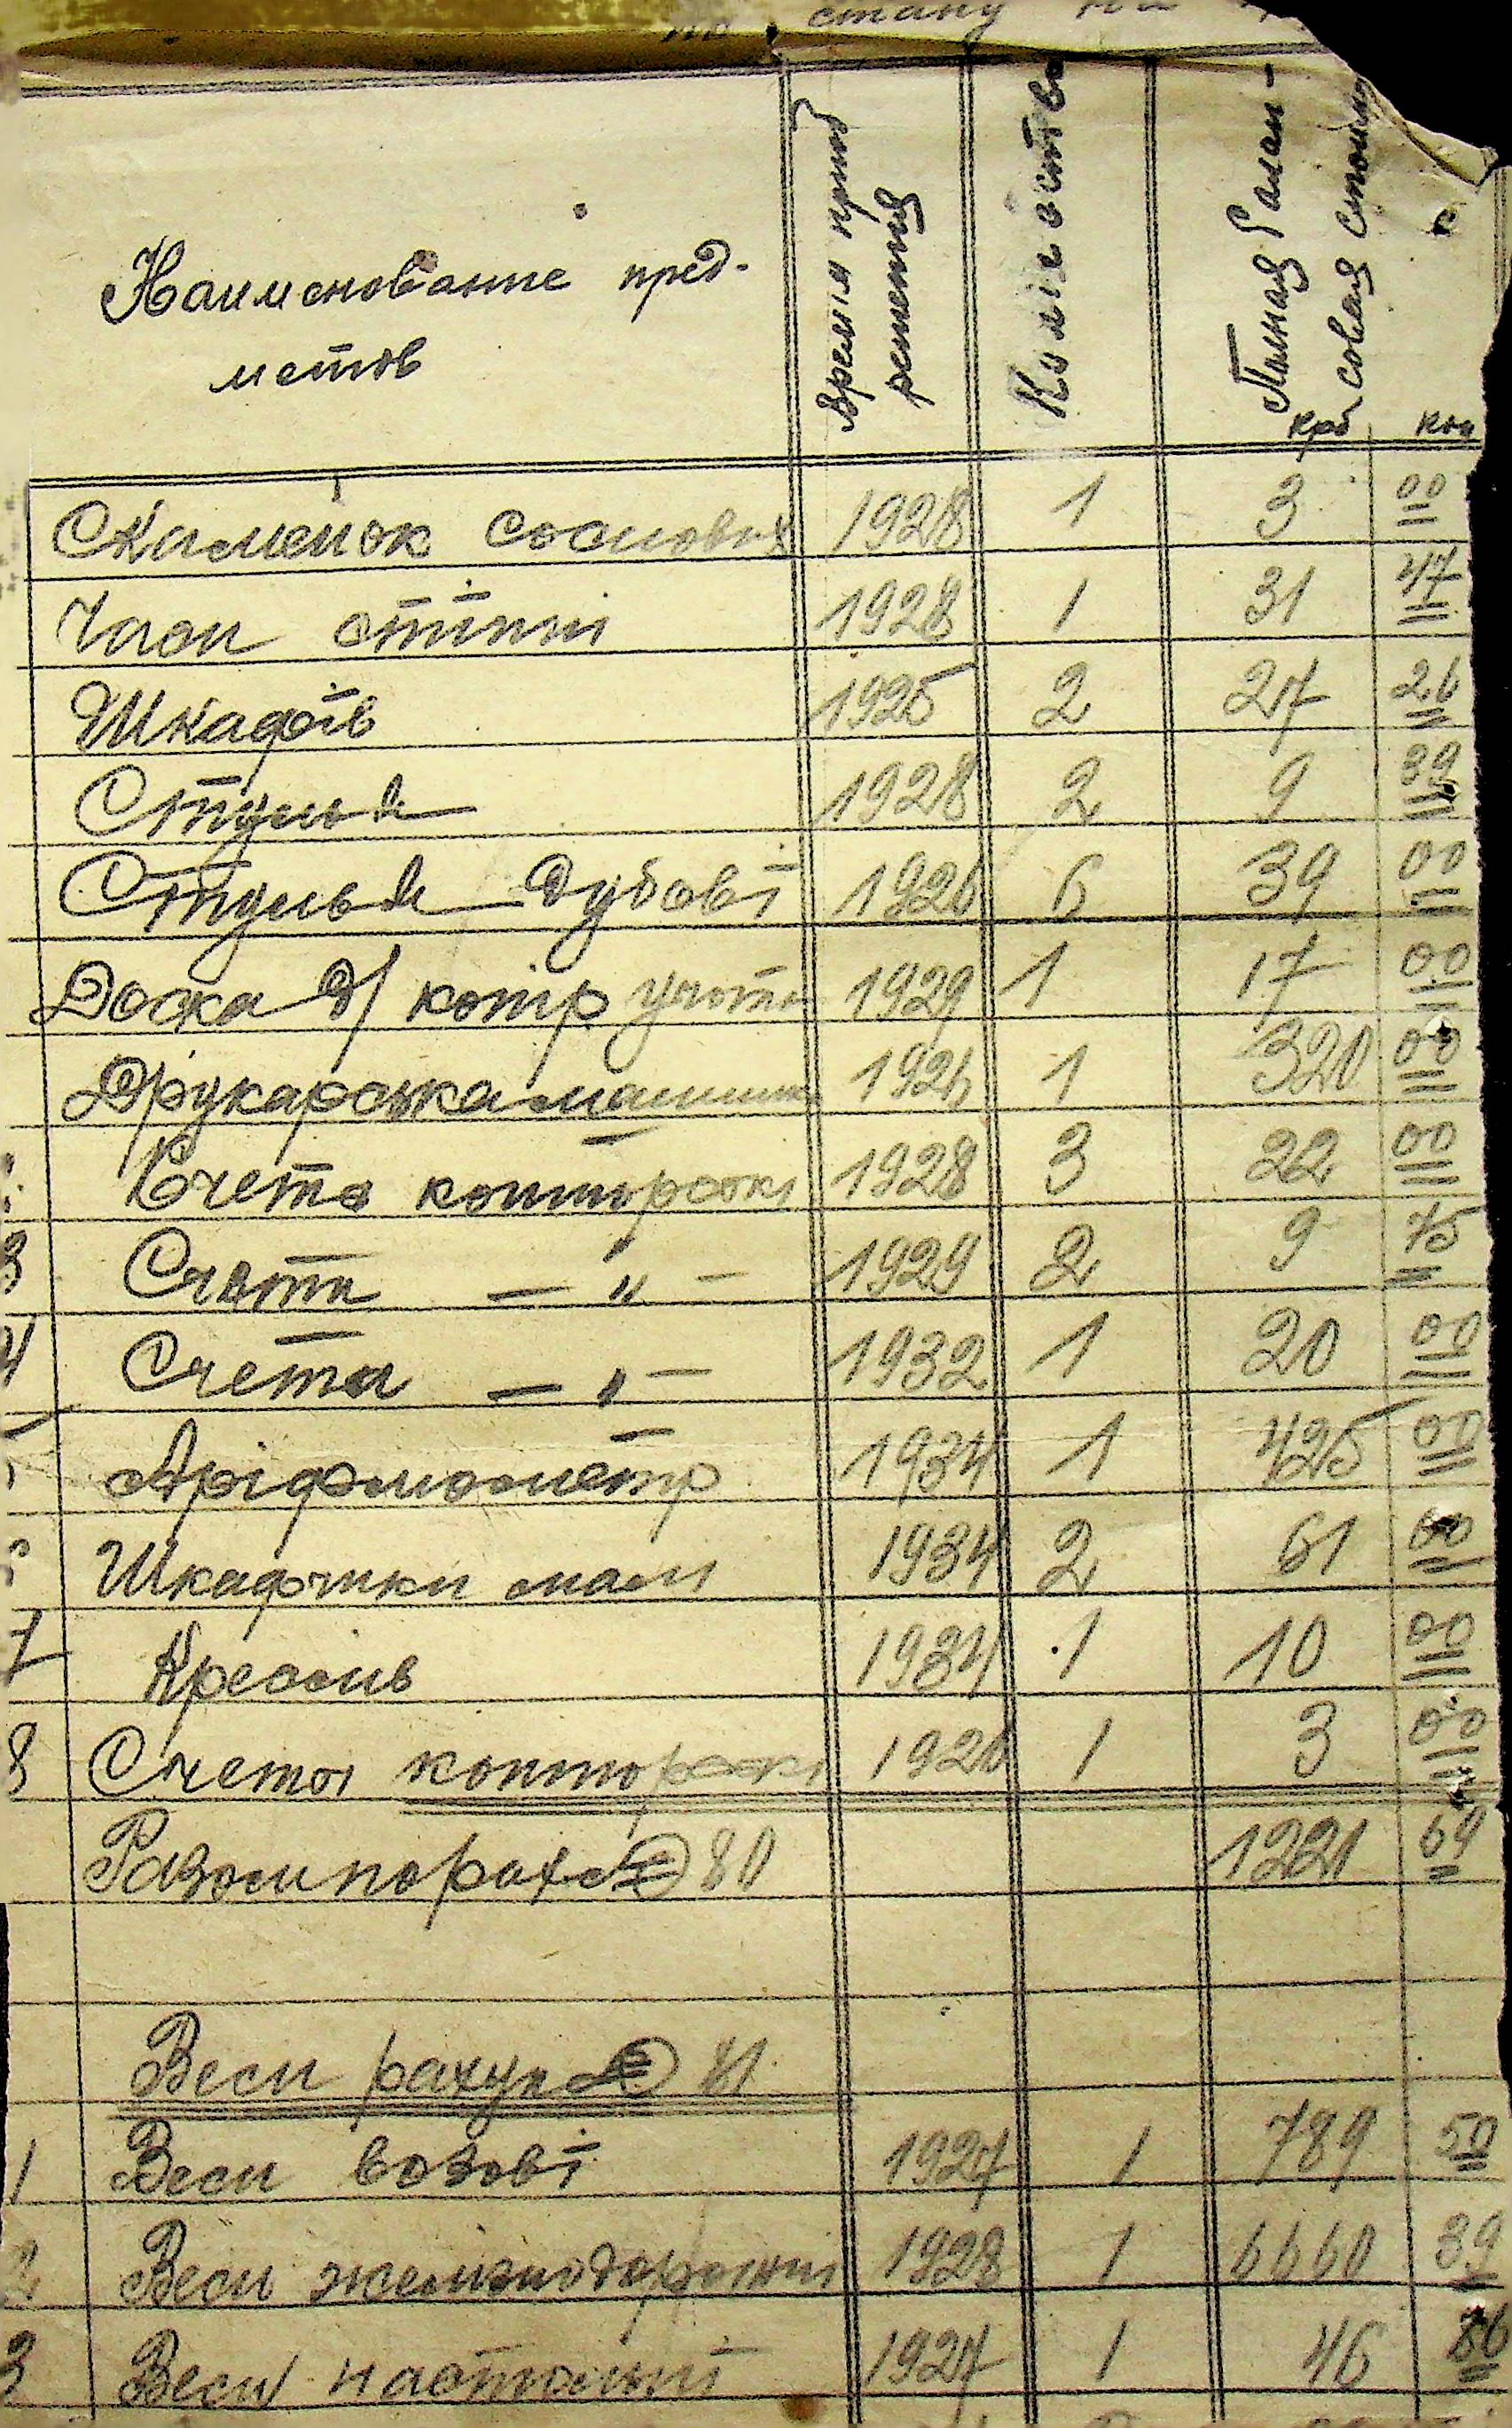 по стану на
Наименование пред-
метов
Время приоб
ретения
Количество
Полная Балан-
совая стоим
крб коп
Скамейок соснових 1928 1 3 00
Часи стінні 1928 1 31 47
Шкафів 1925 2 27 26
Стулья 1928 2 9 39
Стулья дубові 1926 6 39 00
Доска д/ контр учота 1929 1 17 00
Друкарська машинка 1926 1 320 00
Счета конторскі 1928 3 22 00
3 Счета — " — 1929 2 9 75
4 Счета — " — 1932 1 20 00
5 Арифмометр 1934 1 425 00
Шкафчики малі 1934 2 61 00
7 Креслів 1934 1 10 00
8 Счета конторскі 1926 1 3 00
Разом по рах 80 1221 69
Веси рахун 81
1 Веси возові 1927 1 789 50
2 Веси железнодорожні 1928 1 6660 39
3 Веси настольні 1927 1 46 86